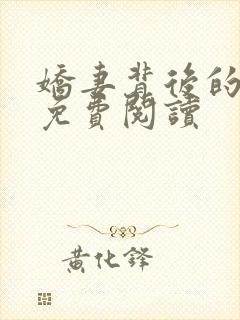 嬌妻背後的
免費閱讀
黃化鋒